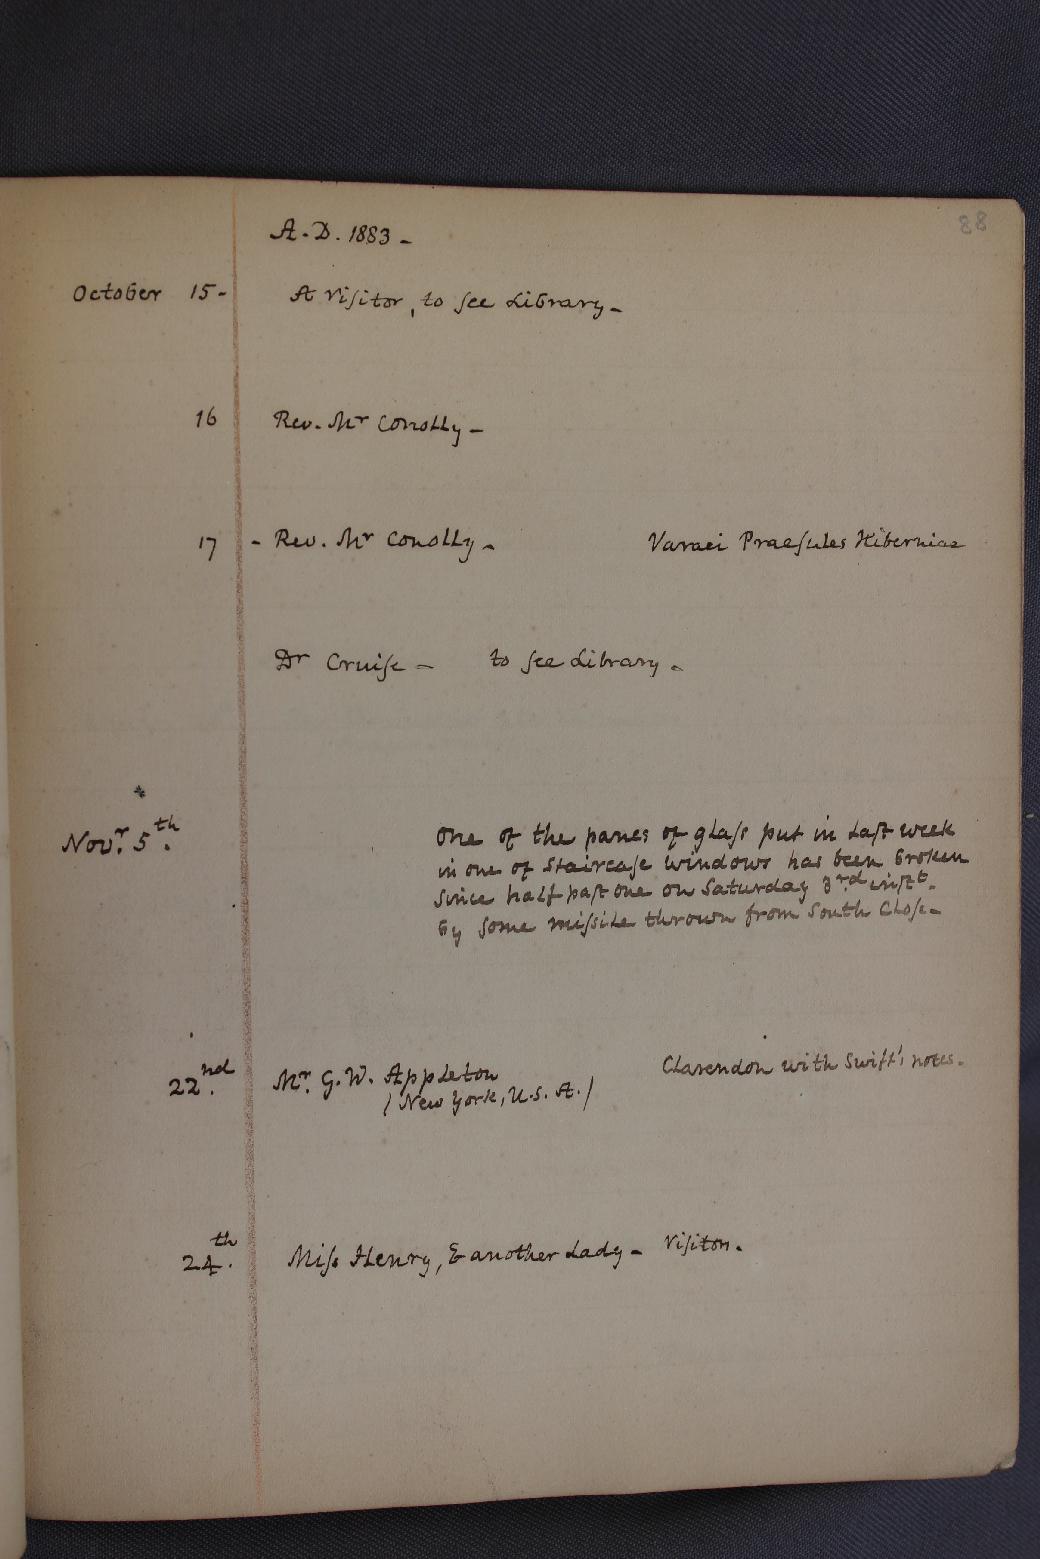 88
A.D. 1883 -
October 15 - A Visitor, to see Library -
16 Rev. Mr Conolly -
17 - Rev. Mr Conolly - Varaei Praesules Hiberniae
Dr Cruise - to see Library -
*
Novr. 5th. One of the panes of glass put in last week
in one of Staircase windows has been broken
since half past one on Saturday 3rd inst.
by some missile thrown from South Close -
22nd. Mr. G. W. Appleton Clarendon with Swift's notes.
(New York, U.S.A.)
24th. Miss Henry, & another Lady - Visitors.